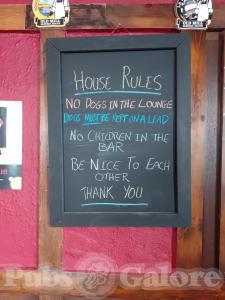 House Rules
No Dogs in the Lounge
Dogs must be kept on a lead
No Children in the
Bar
Be Nice To Each
Other
Thank You
Pubs Galore